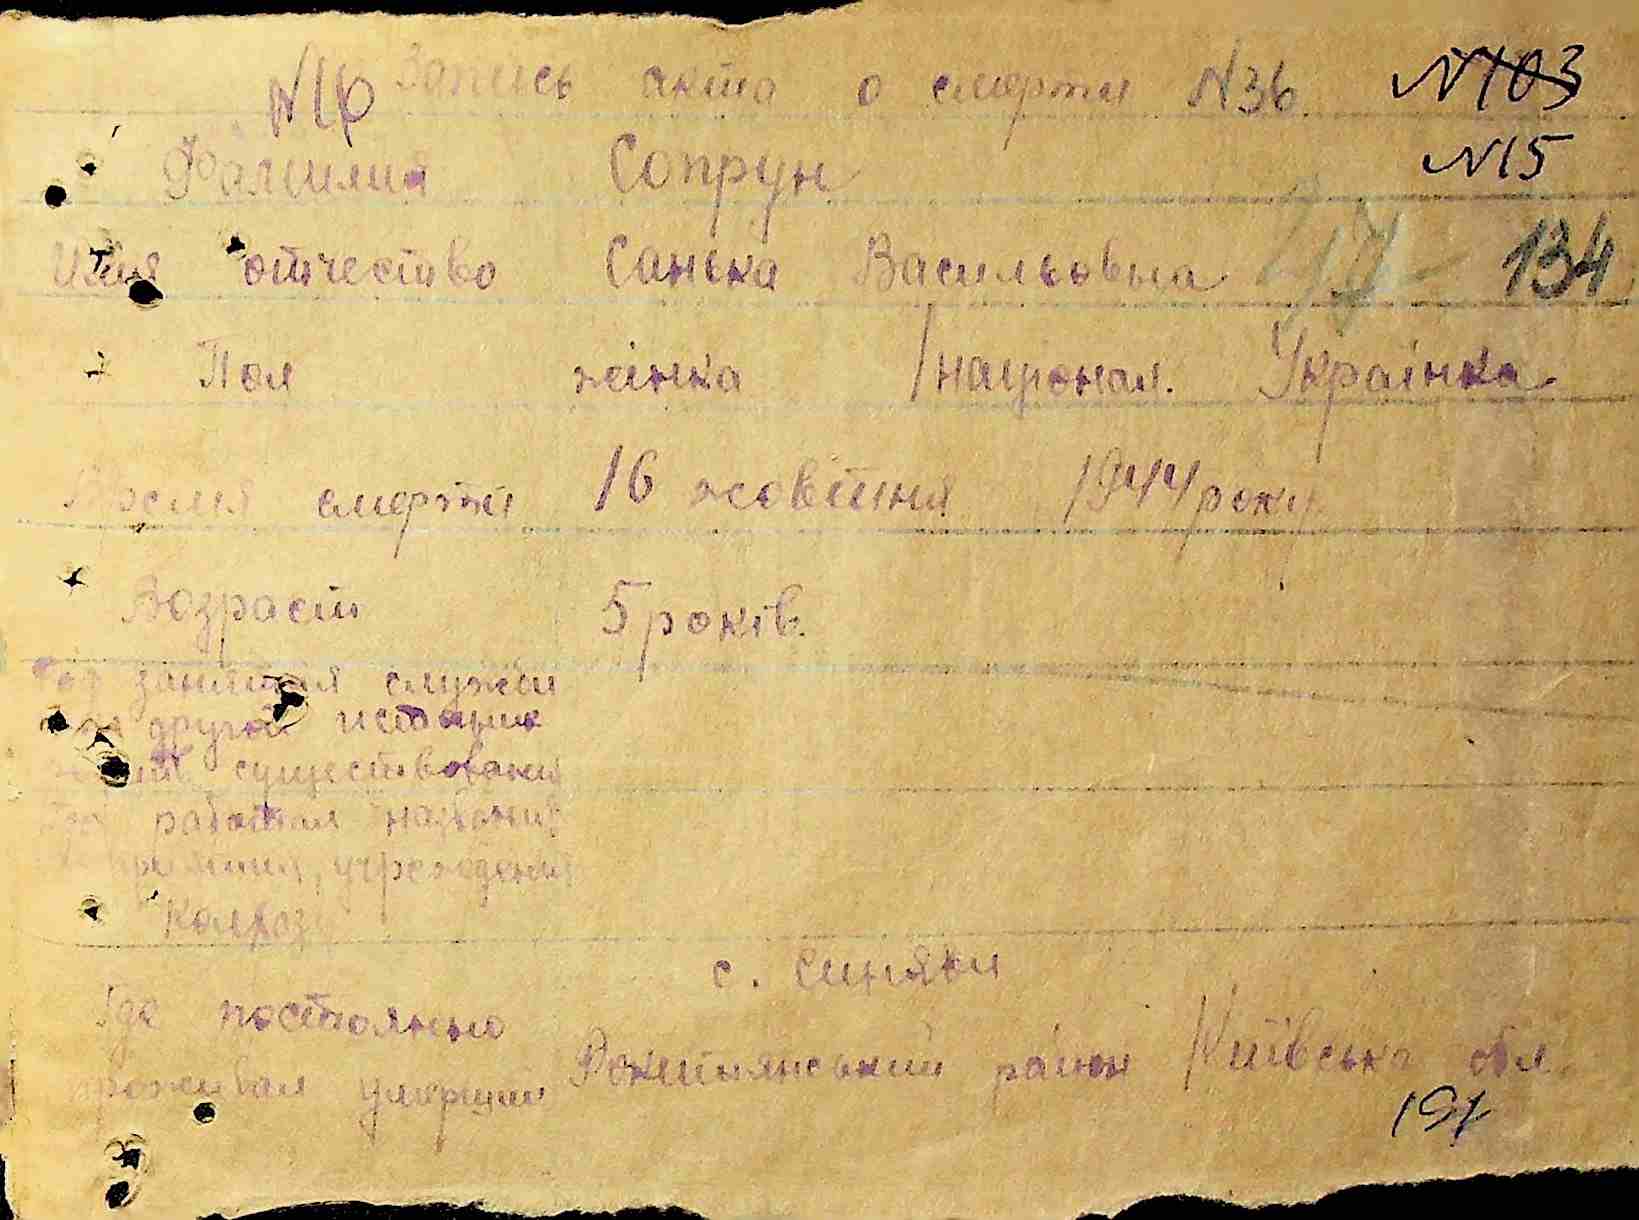 N16 Запись акта о смерти N36. N103
Фамилия Сопрун N15
Имя отчество Санька Васильовна 134
Пол жінка / национал. Українка
Время смерти 16 жовтня 1944 року
Возраст 5 років.
Род занятия службы
или другой источник
существования
Где работал название
учреждения
колхоз
с. Синяви
Где постоянно
проживал умерший Рокитнянський район Київська обл.
191